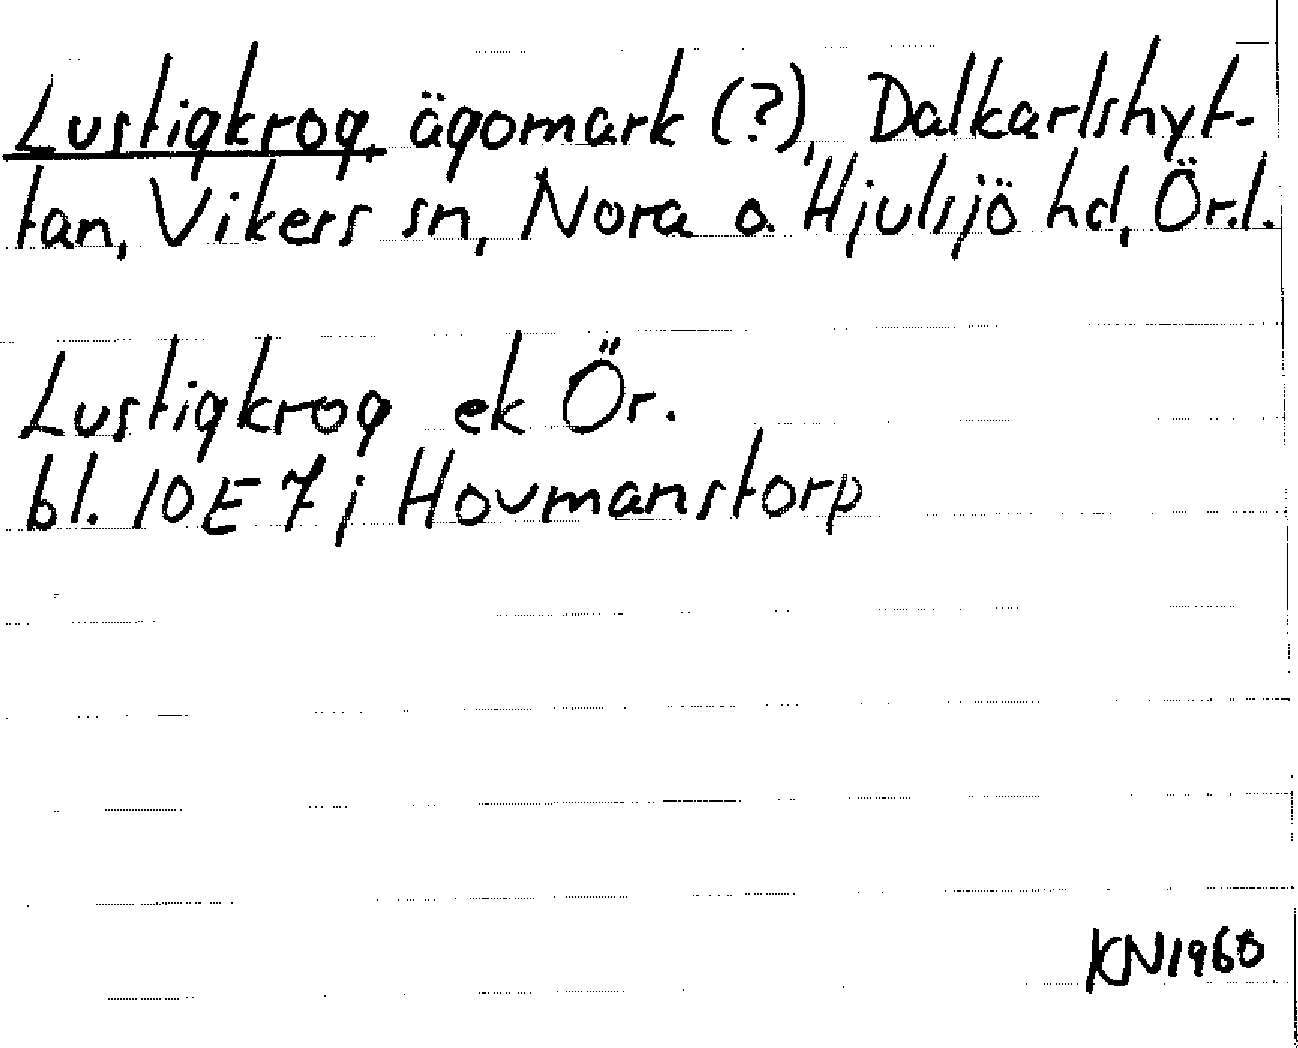 Lustigkrog, ägomark (?), Dalkarlshyt-
tan, Vikers sn, Nora o. Hjulsjö hd, Ör.l.
Lustigkrog ek Ör.
bl. 10E 7j Hovmanstorp
KN1960